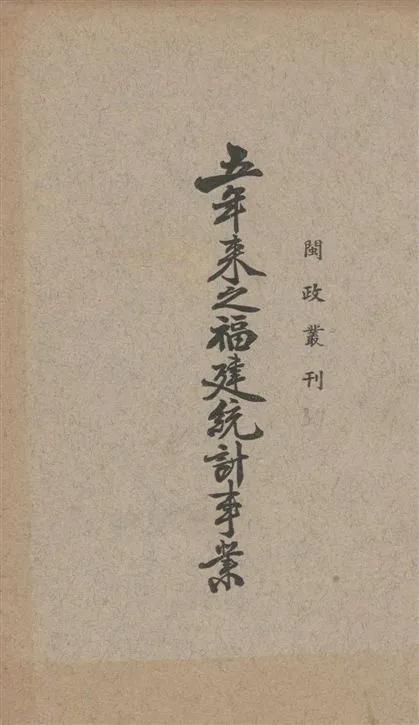 閩政叢刊
五年来之福建統計事業